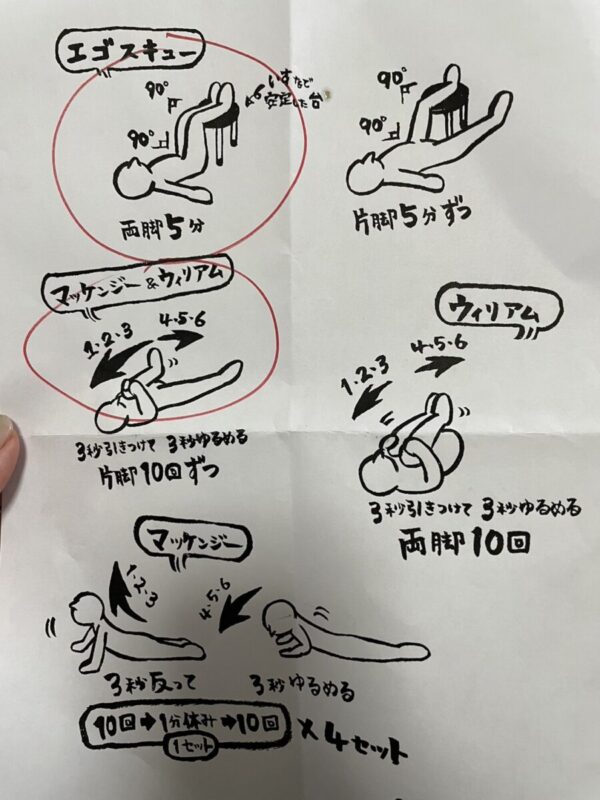 エゴスキュー
90°
90°
いすなど
安定した台
両脚5分
90°
90°
片脚5分ずつ
マッケンジー&ウィリアム
1・2・3
4・5・6
3秒引きつけて 3秒ゆるめる
片脚10回ずつ
ウィリアム
1・2・3
4・5・6
3秒引きつけて 3秒ゆるめる
両脚10回
マッケンジー
1・2・3
4・5・6
3秒反って
3秒ゆるめる
10回➡1分休み➡10回
1セット
×4セット